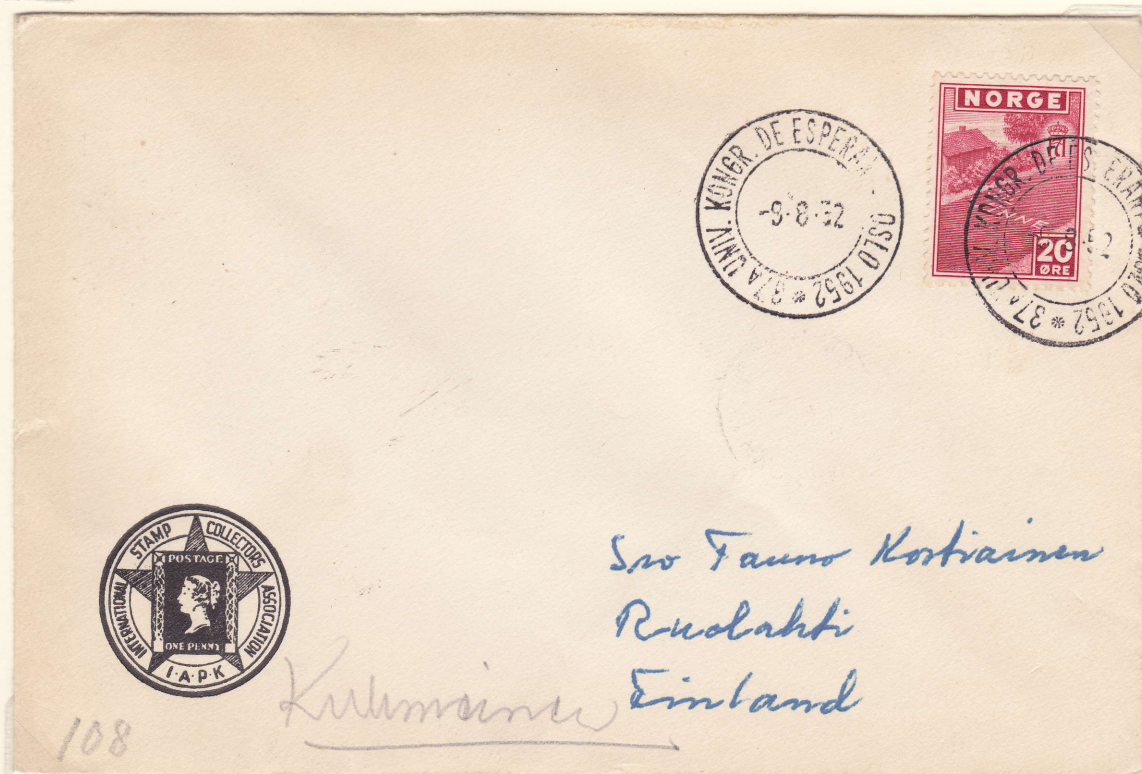 NORGE
20
ØRE
37A UNIV. KONGR. DE ESPERAN OSLO 1952 *
-9-8-52
37A UNIV. KONGR. DE ESPERAN OSLO 1952 *
INTERNATIONAL STAMP COLLECTORS ASSOCIATION
POSTAGE
ONE PENNY
I·A·P·K
Sro Tauno Kostiainen
Ruolahti
Finland
108